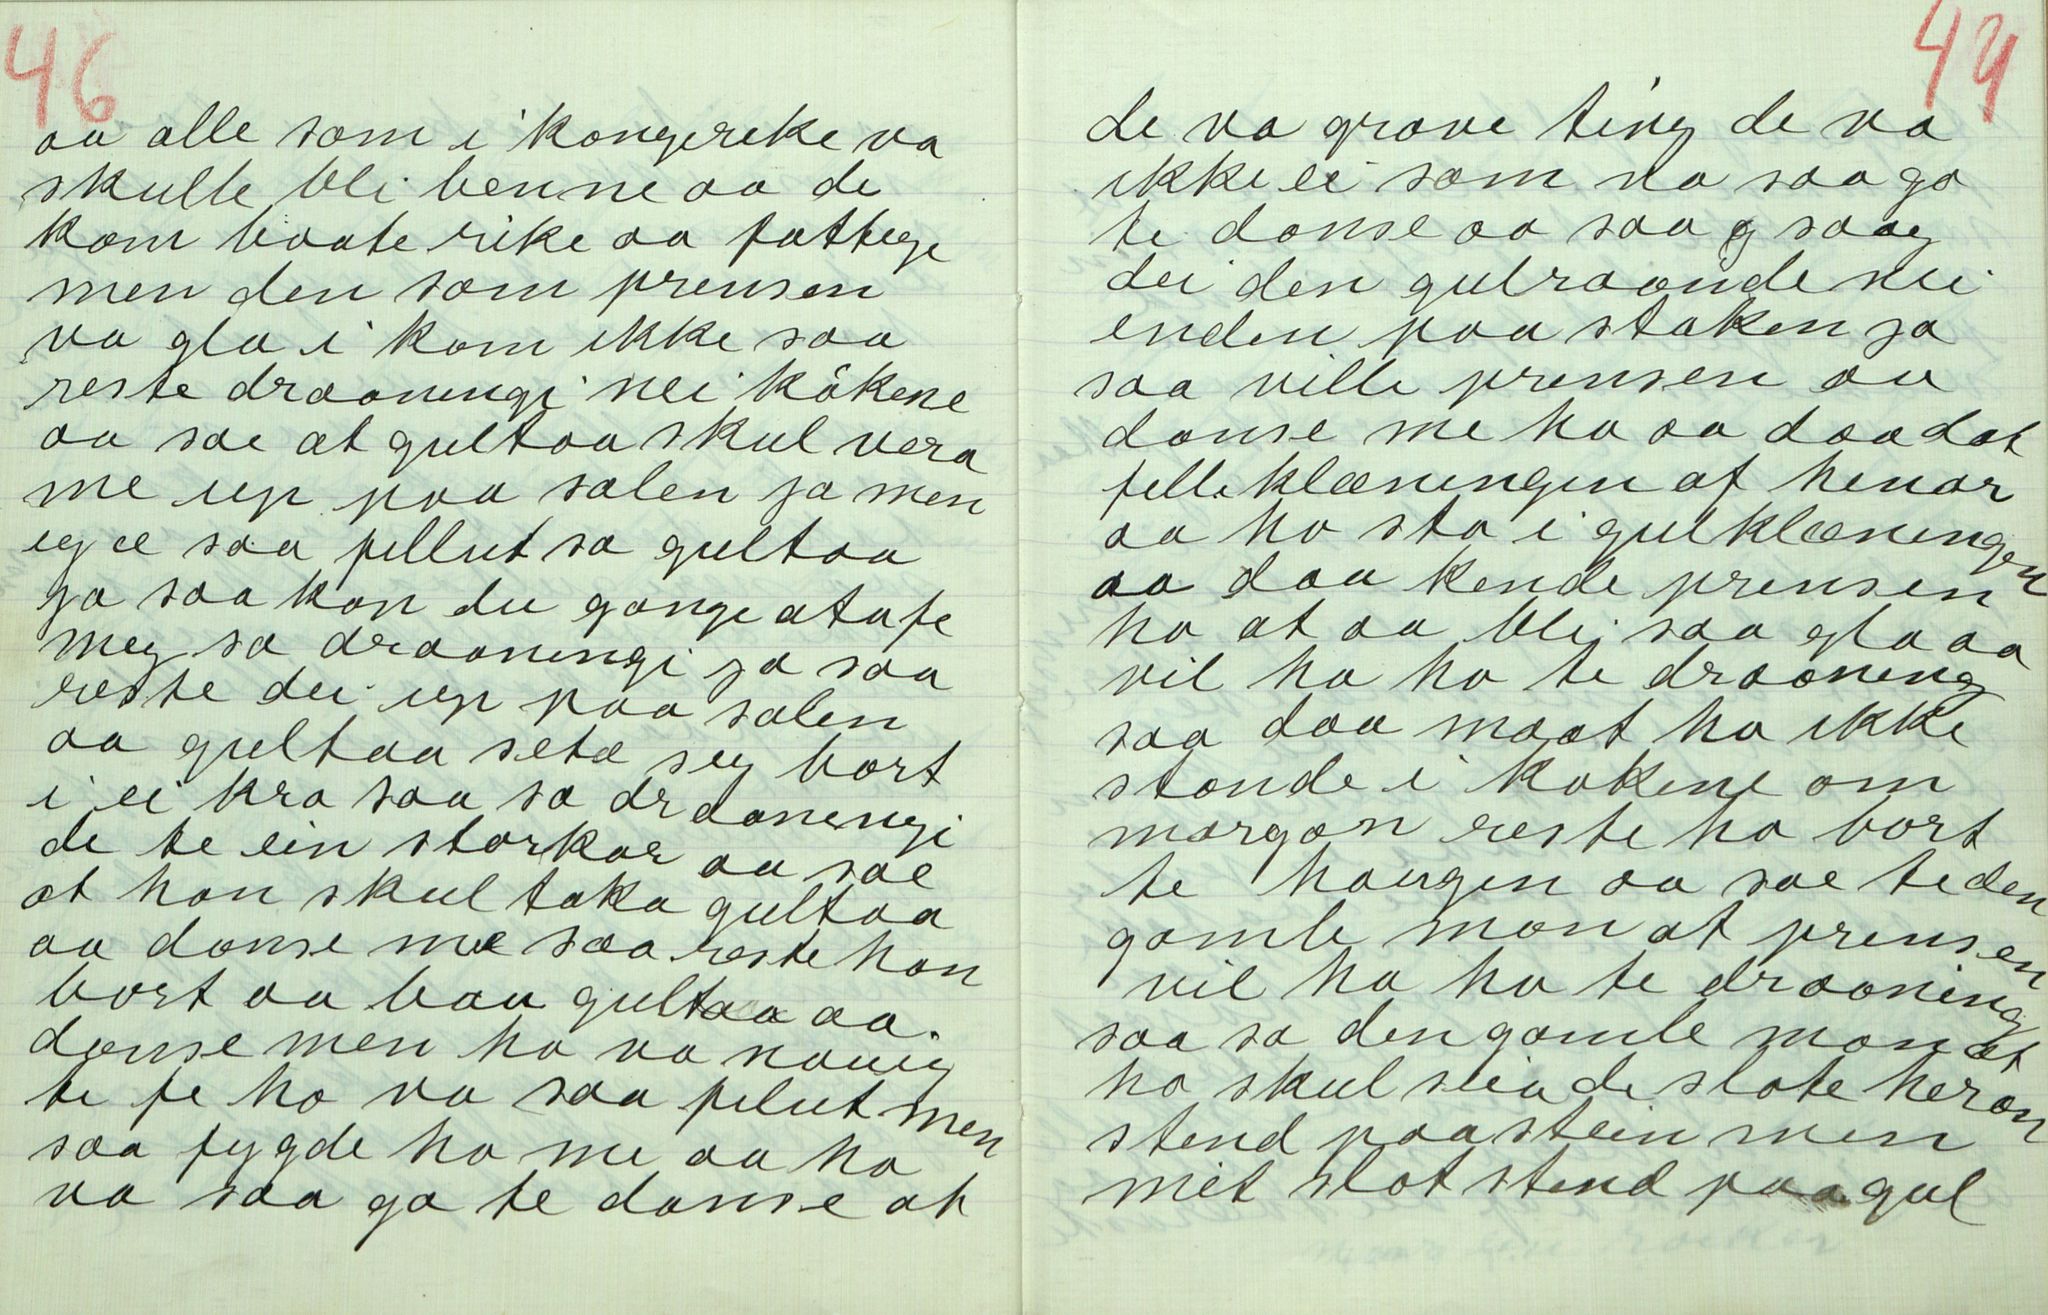 46
aa alle som i kongereke va
skulle bli benne aa de
kom baate rike aa fattege
men den som prensen
va gla i kom ikke saa
reste draaningi nei kökene
aa sae at gultaa skul vera
me up paa salen ja men
eg e saa fillut sa gultaa
ja saa kan du gange atafe
meg sa draaningi ja saa
reste dei up paa salen
aa gultaa seta seg bort
i ei kra saa sa drdaningi
de te ein storkar aa sae
at han skul taka gultaa
aa danse me saa reste han
bort aa bau gultaa aa.
danse men ho va nauig
te fe ho va saa felut men
saa fygde ho me aa ho
va saa go te danse at
47
de va grove ting de va
ikke ei som va saa go
te danse aa saa g saag
dei den gulraande nei
enden paa staken ja
saa ville prensen aa
danse me ho aa daa dat
felleklæningen af henar
aa ho sto i gulklæningen
aa daa kende prensen
ho at aa blei saa gla aa
vil ha ho te draaning
saa daa maat ho ikke
stande i kokene om
morgon reste ho bort
te haugen aa sae te den
gamle man at prensen
vil ha ho te draaning
saa sa den gamle man at
ho skul seia de slote heran
stend paa stein men
mit slot stend paa gul